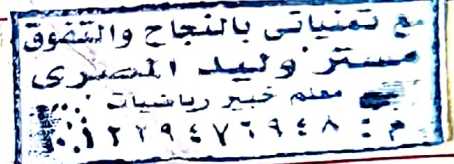 مع تمنياتى بالنجاح والتفوق
مستر وليد المصرى
معلم خبير رياضيات
م: ٠١٢٢٩٤٧٦٩٤٨